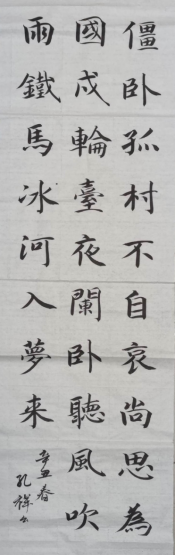 僵卧孤村不自哀尚思為
國戍輪臺夜闌卧聽風吹
雨鐵馬冰河入夢来
辛丑春
孔祥书